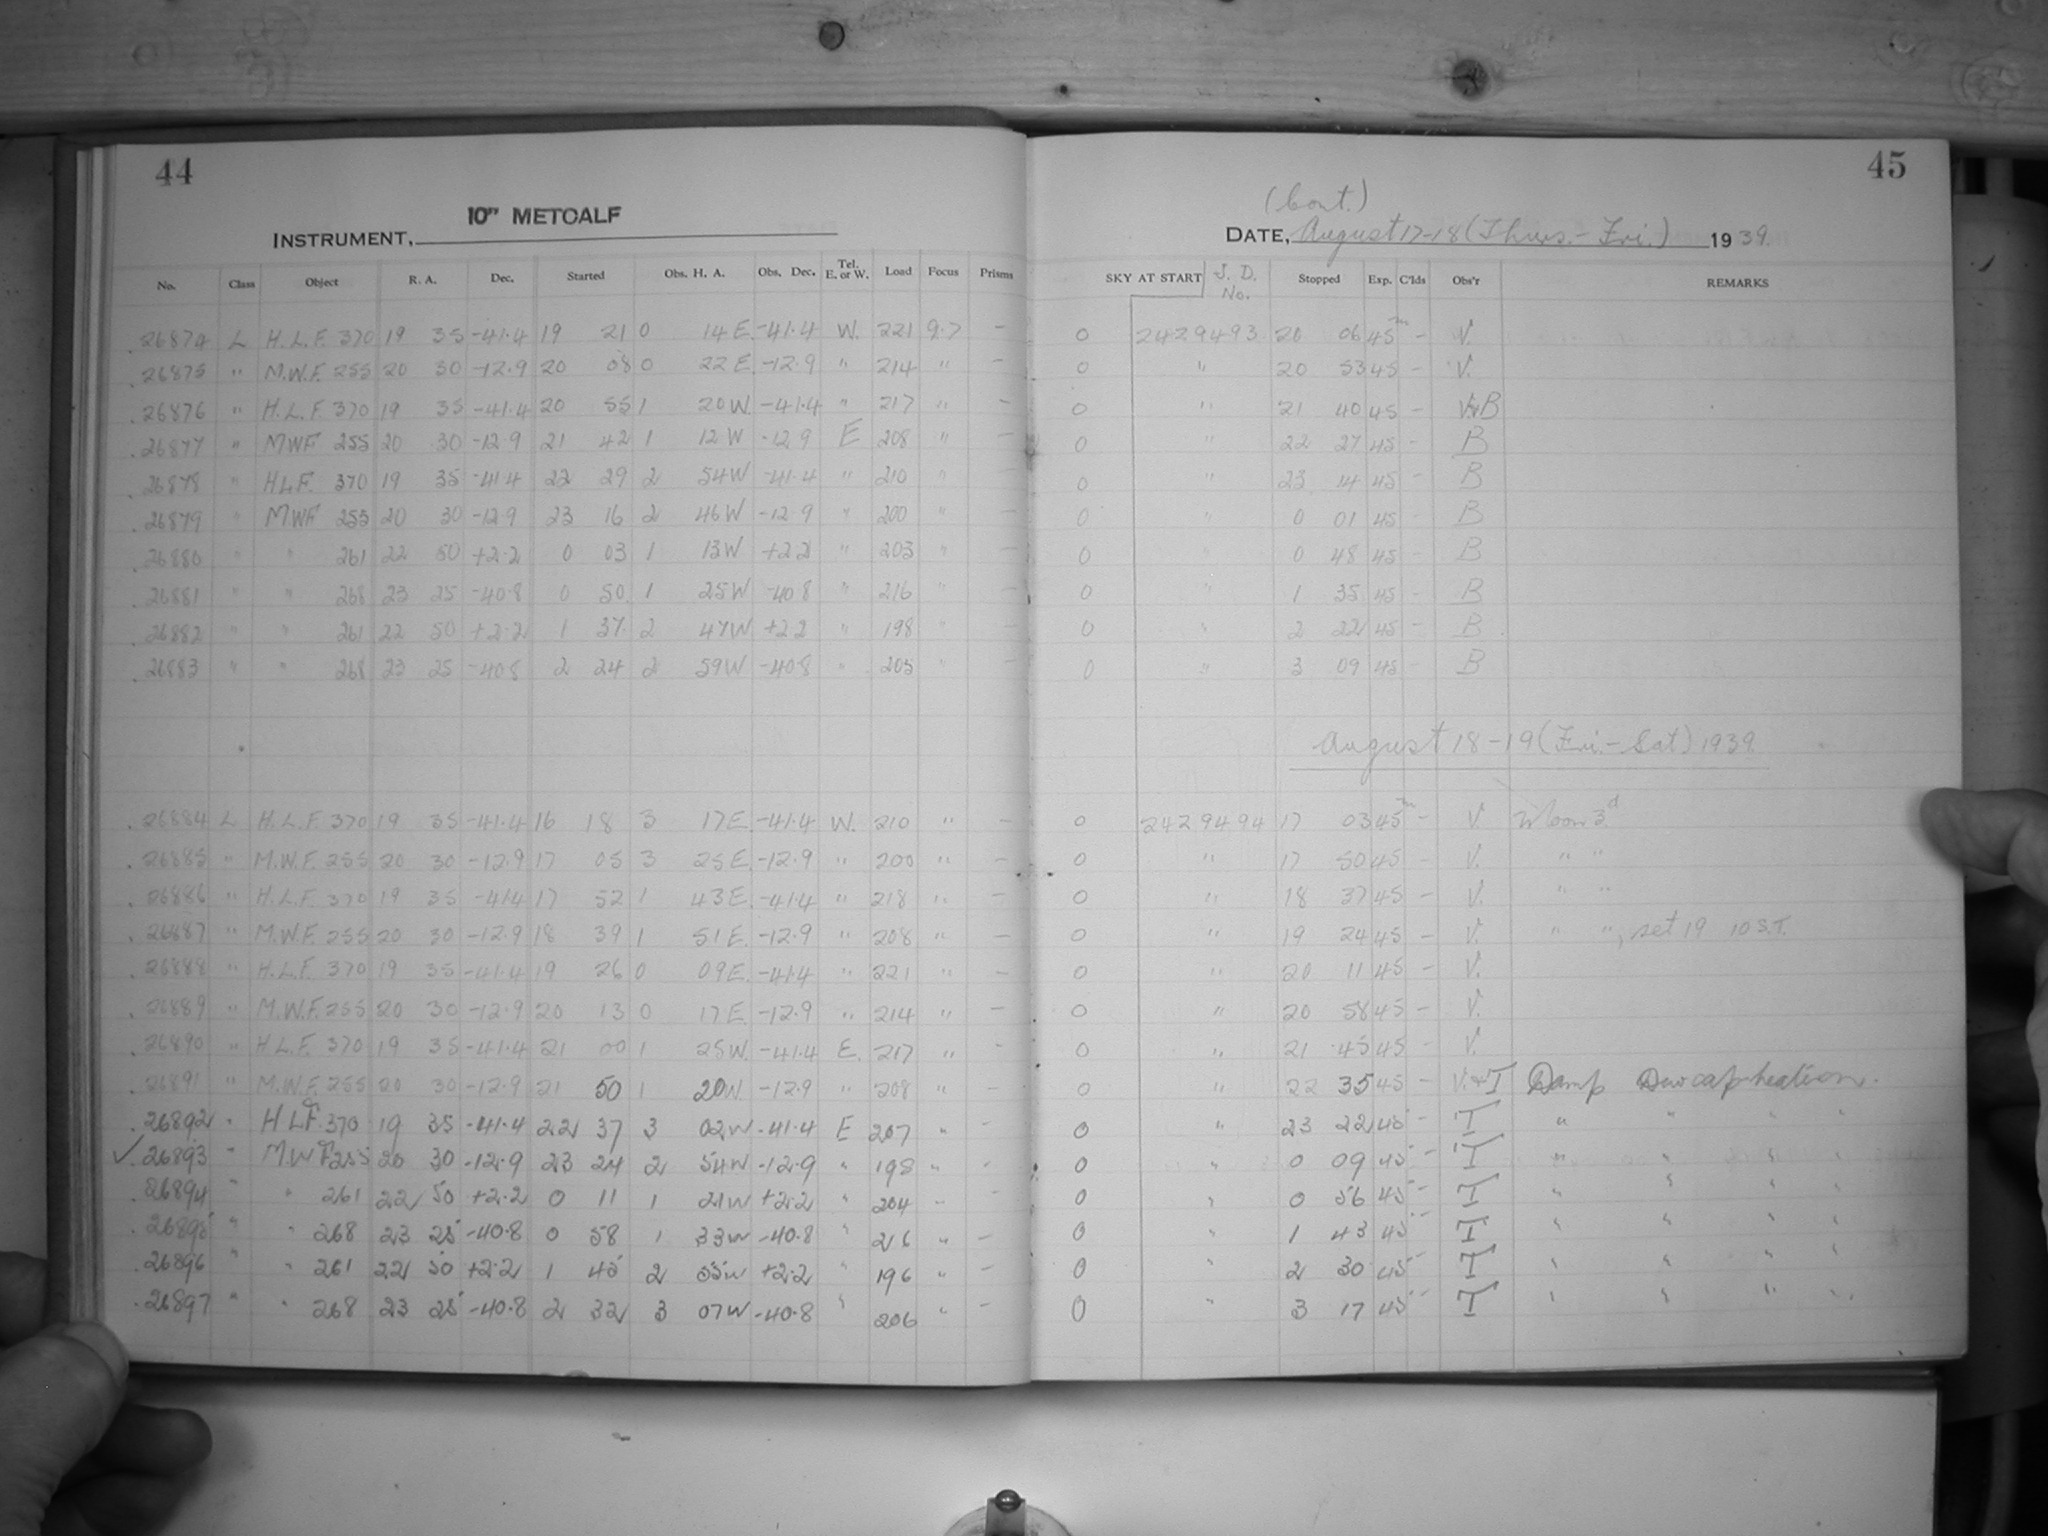 44
10" METCALF
INSTRUMENT,
No. Class Object R. A. Dec. Started Obs. H. A. Obs. Dec. Tel. E. or W. Load Focus Prisms
26874 L H.L.F. 370 19 35 -41.4 19 21 0 14 E. -41.4 W. 221 9.7 -
26875 " M.W.F. 255 20 30 -12.9 20 08 0 22 E. -12.9 " 214 " -
26876 " H.L.F. 370 19 35 -41.4 20 55 1 20 W. -41.4 " 217 " -
26877 " MWF 255 20 30 -12.9 21 42 1 12 W -12.9 E 208 " -
26878 " HLF. 370 19 35 -41.4 22 29 2 54 W -41.4 " 210 " -
26879 " M.WF 255 20 30 -12.9 23 16 2 46 W -12.9 " 200 " -
26880 " " 261 22 50 +2.2 0 03 1 13 W +2.2 " 203 " -
26881 " " 268 23 25 -40.8 0 50 1 25 W -40.8 " 216 " -
26882 " " 261 22 50 +2.2 1 37 2 47 W +2.2 " 198 " -
26883 " " 268 23 25 -40.8 2 24 2 59 W -40.8 " 205 " -
26884 L H.L.F. 370 19 35 -41.4 16 18 3 17 E. -41.4 W. 210 " -
26885 " M.W.F. 255 20 30 -12.9 17 05 3 25 E. -12.9 " 200 " -
26886 " H.L.F. 370 19 35 -41.4 17 52 1 43 E. -41.4 " 218 " -
26887 " M.W.F. 255 20 30 -12.9 18 39 1 51 E. -12.9 " 208 " -
26888 " H.L.F. 370 19 35 -41.4 19 26 0 09 E. -41.4 " 221 " -
26889 " M.W.F. 255 20 30 -12.9 20 13 0 17 E. -12.9 " 214 " -
26890 " H.L.F. 370 19 35 -41.4 21 00 1 25 W. -41.4 E. 217 " -
26891 " M.W.F. 255 20 30 -12.9 21 50 1 20 W. -12.9 " 208 " -
26892 " HLF 370 19 35 -41.4 22 37 3 02 W -41.4 E 207 " -
✓ 26893 " M.WF 255 20 30 -12.9 23 24 2 54 W -12.9 " 198 " -
26894 " " 261 22 50 +2.2 0 11 1 21 W +2.2 " 204 " -
26895 " " 268 23 25 -40.8 0 58 1 33 W -40.8 " 216 " -
26896 " " 261 22 50 +2.2 1 45 2 55 W +2.2 " 196 " -
26897 " " 268 23 25 -40.8 2 32 3 07 W -40.8 " 206 " -
45
(Cont.)
DATE, August 17-18 (Thurs. - Fri.) 1939.
SKY AT START J. D. No. Stopped Exp. C'lds Obs'r REMARKS
0 2429493 20 06 45m - V.
0 " 20 53 45 - V.
0 " 21 40 45 - V+B
0 " 22 27 45 - B
0 " 23 14 45 - B
0 " 0 01 45 - B
0 " 0 48 45 - B
0 " 1 35 45 - B
0 " 2 22 45 - B
0 " 3 09 45 - B
August 18-19 (Fri. - Sat) 1939.
0 2429494 17 03 45m - V. Moon 3d
0 " 17 50 45 - V. " "
0 " 18 37 45 - V. " "
0 " 19 24 45 - V. " ", set 19 10 S.T.
0 " 20 11 45 - V.
0 " 20 58 45 - V.
0 " 21 45 45 - V.
0 " 22 35 45 - V.+T Damp Dewcap heation.
0 " 23 22 45 - T " " " "
0 " 0 09 45 - T " " " "
0 " 0 56 45 - T " " " "
0 " 1 43 45 - T " " " "
0 " 2 30 45 - T " " " "
0 " 3 17 45 - T " " " "